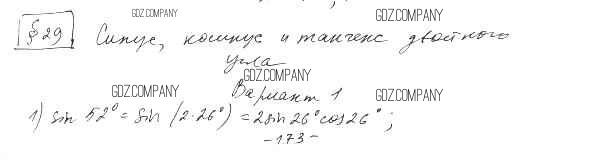 GDZ.COMPANY GDZ.COMPANY
§ 29. Синус, косинус и тангенс двойного
угла
GDZ.COMPANY
GDZ.COMPANY Вариант 1 GDZ.COMPANY
1) sin 52° = sin (2·26°) = 2sin 26° cos 26°;
-173-